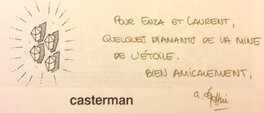 POUR ENZA ET LAURENT,
QUELQUES DIAMANTS DE LA MINE
DE L'ÉTOILE.
BIEN AMICALEMENT,
casterman